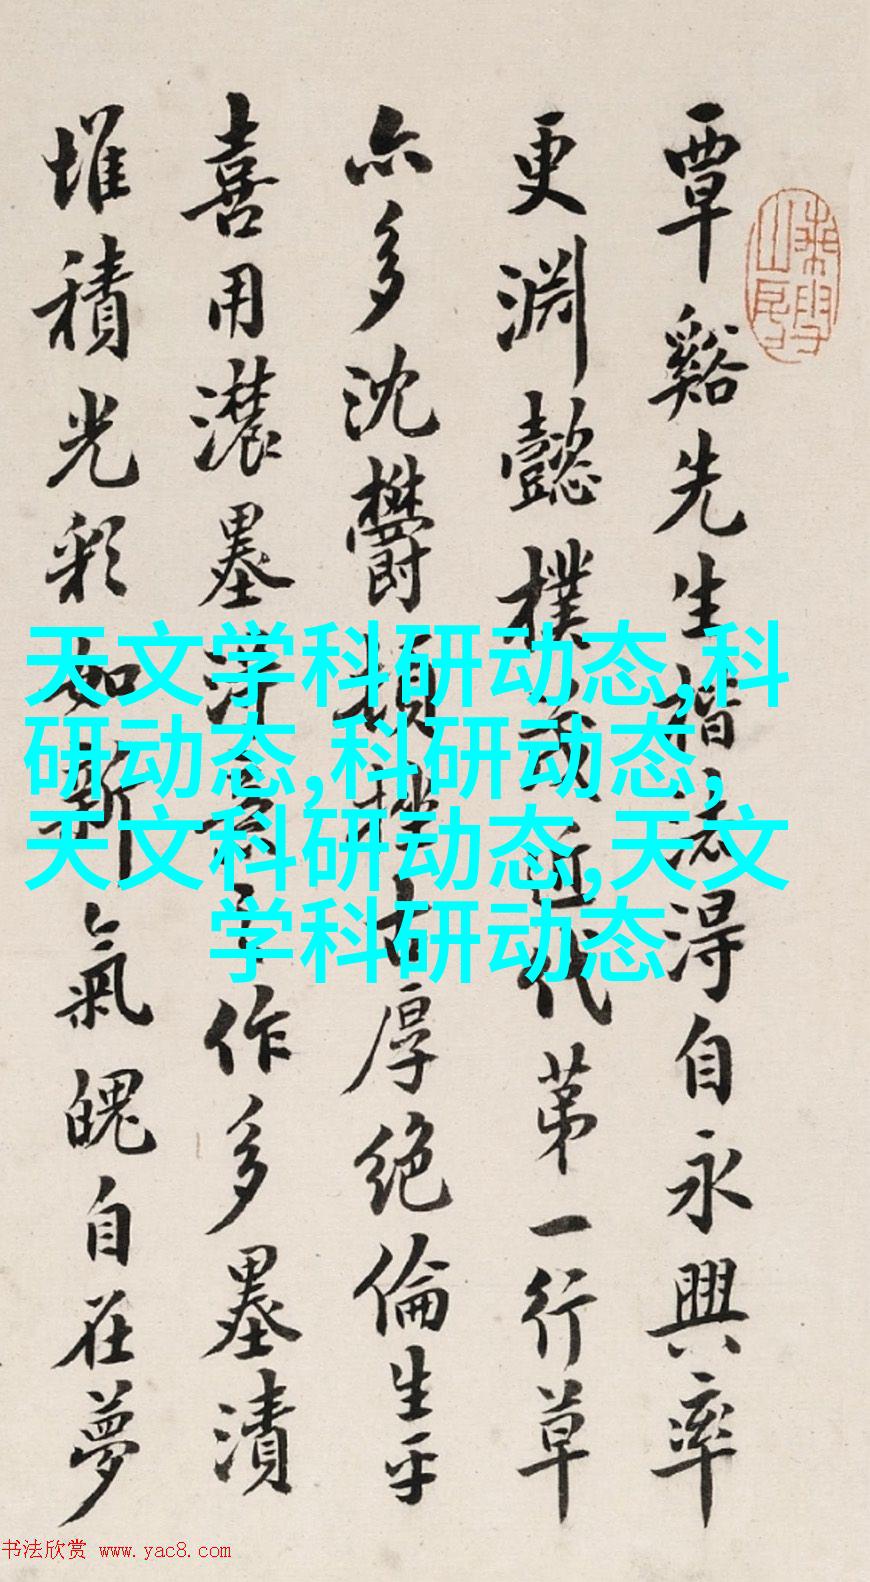 覃谿先生楷法得自永興率
更淵懿樸茂近代第一行草
亦多沈鬱頓挫古厚絕倫生平
喜用濃墨得意之作多墨漬
堆積光彩如新氣魄自在夢
天文学科研动态,科
研动态,科研动态,
天文科研动态,天文
学科研动态
书法欣赏 www.yac8.com